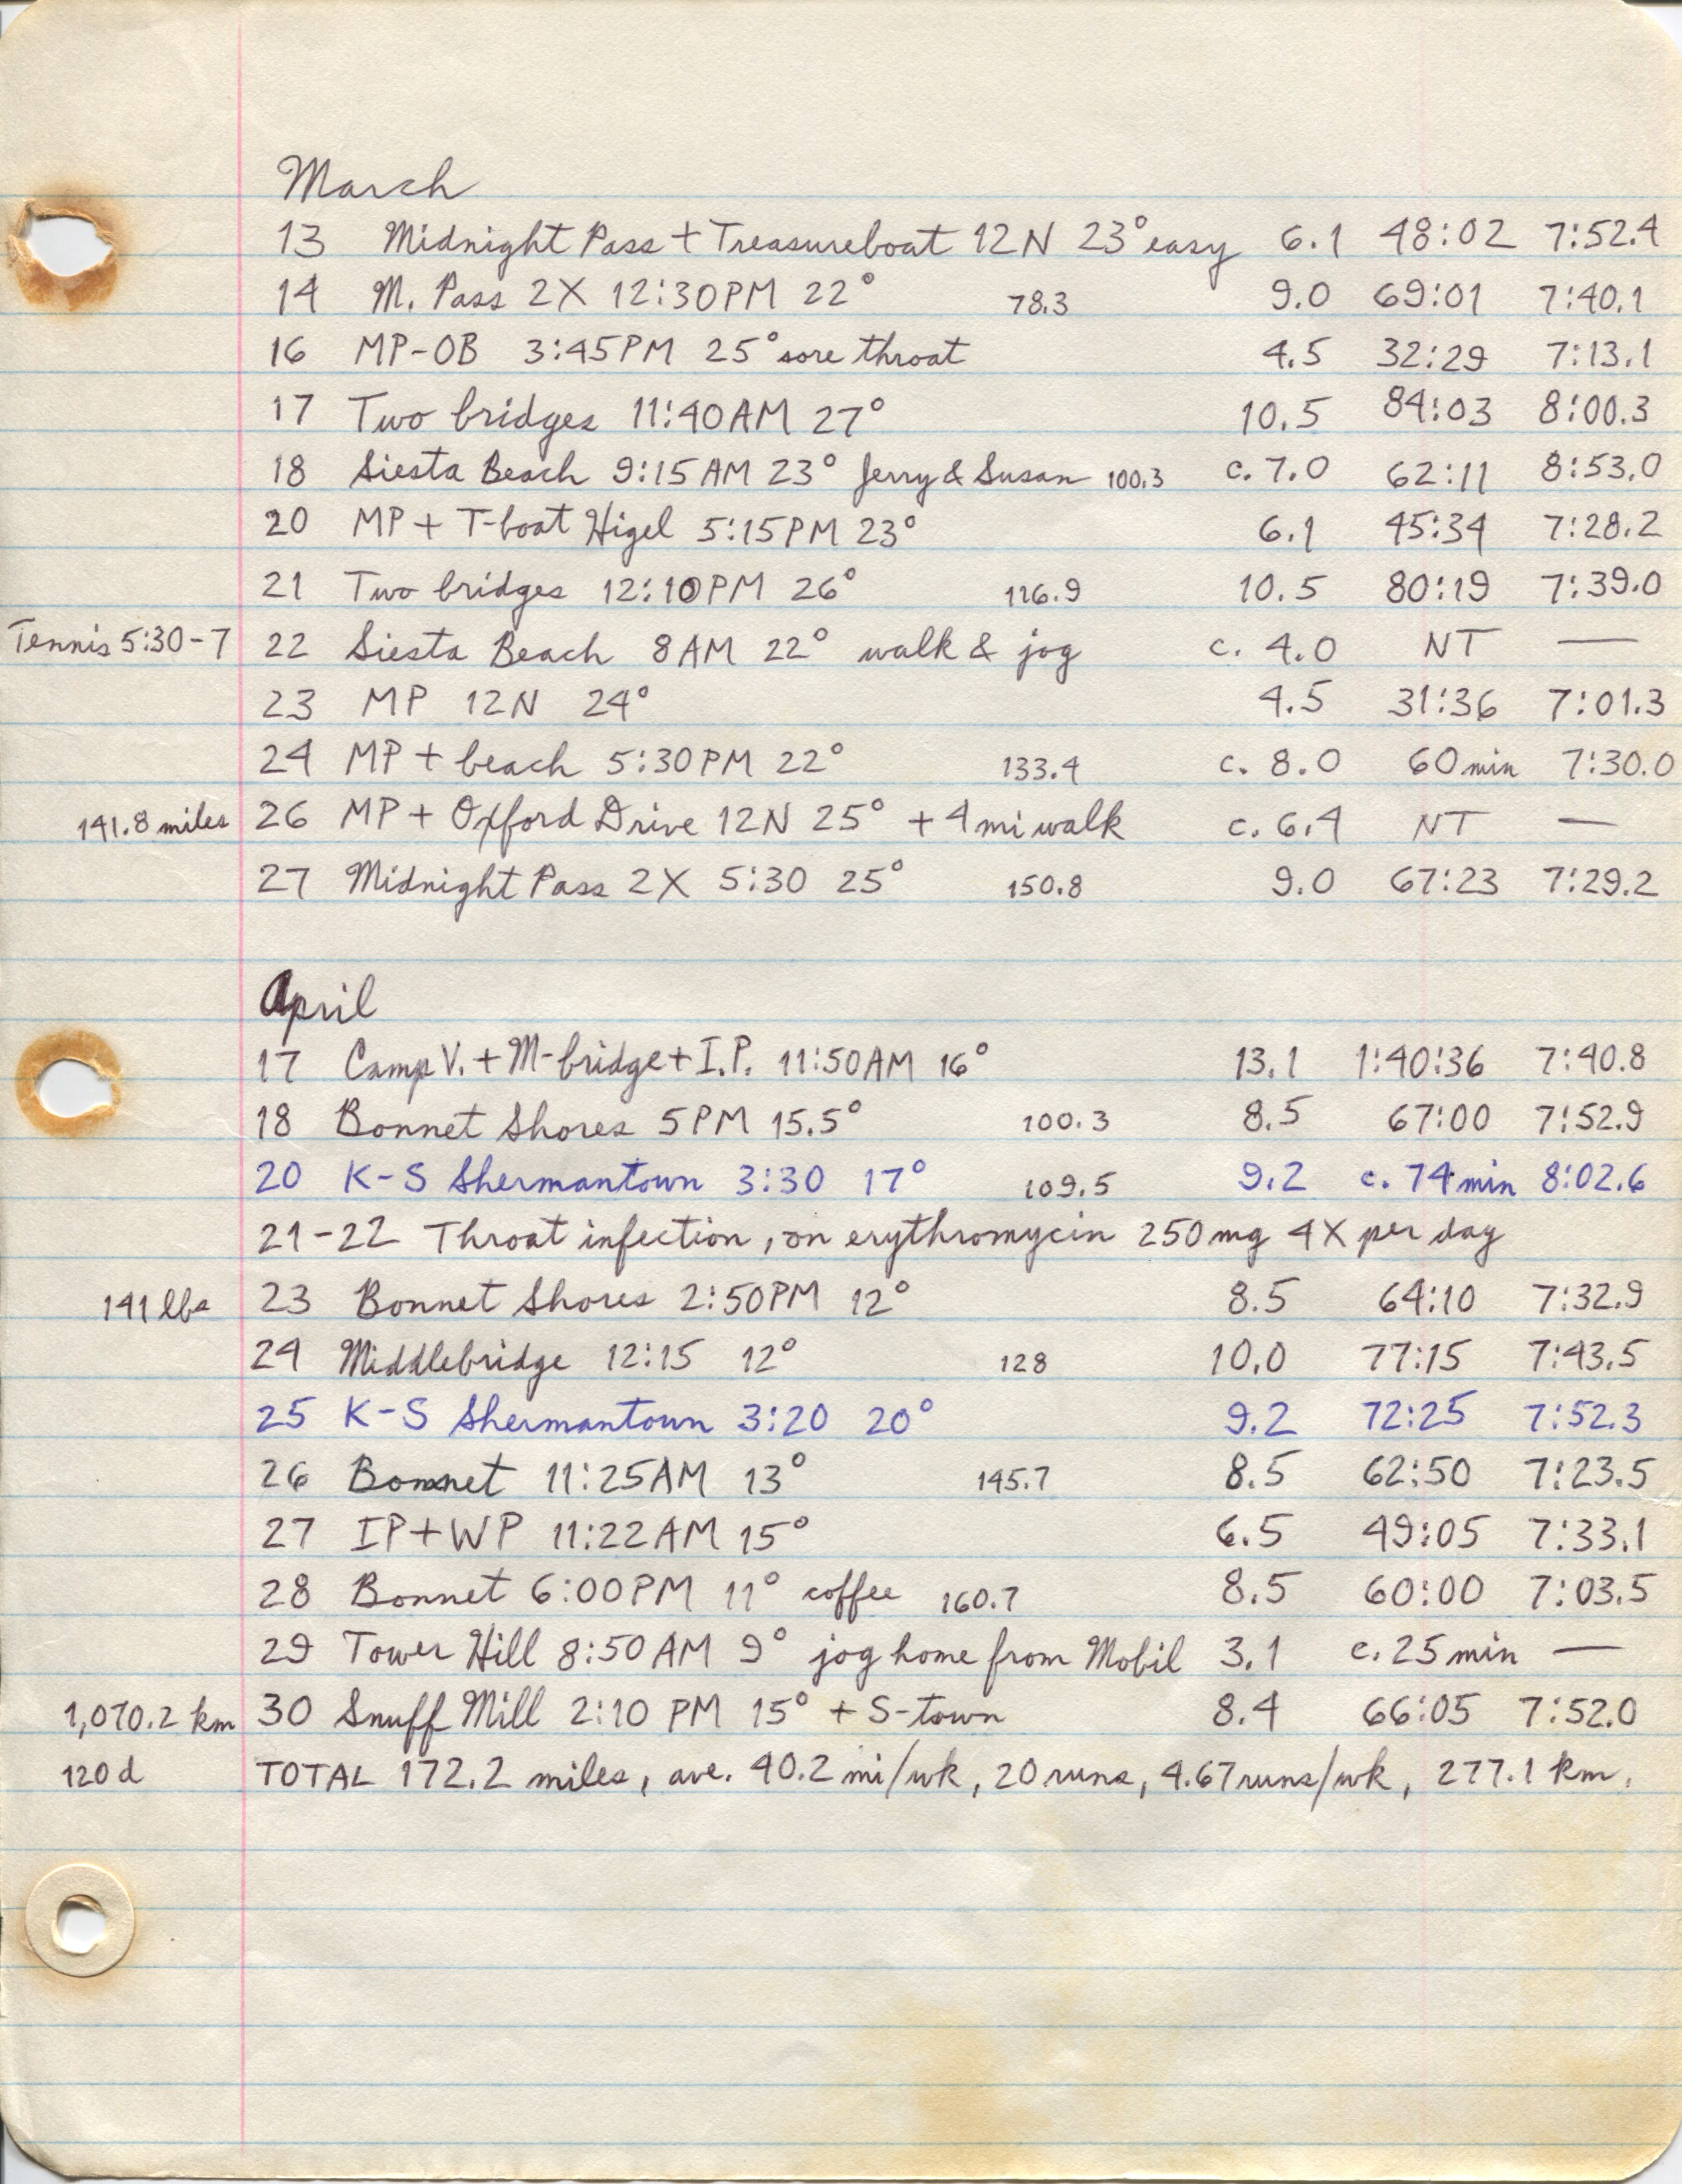 March
13 Midnight Pass + Treasureboat 12N 23° easy 6.1 48:02 7:52.4
14 M. Pass 2X 12:30PM 22° 78.3 9.0 69:01 7:40.1
16 MP-OB 3:45PM 25° sore throat 4.5 32:29 7:13.1
17 Two bridges 11:40AM 27° 10.5 84:03 8:00.3
18 Siesta Beach 9:15AM 23° Jerry & Susan 100.3 c. 7.0 62:11 8:53.0
20 MP + T-boat Higel 5:15PM 23° 6.1 45:34 7:28.2
21 Two bridges 12:10PM 26° 116.9 10.5 80:19 7:39.0
Tennis 5:30-7 22 Siesta Beach 8AM 22° walk & jog c. 4.0 NT —
23 MP 12N 24° 4.5 31:36 7:01.3
24 MP + beach 5:30PM 22° 133.4 c. 8.0 60min 7:30.0
141.8 miles 26 MP + Oxford Drive 12N 25° + 4mi walk c. 6.4 NT —
27 Midnight Pass 2X 5:30 25° 150.8 9.0 67:23 7:29.2
April
17 Camp V. + M-bridge + I.P. 11:50AM 16° 13.1 1:40:36 7:40.8
18 Bonnet Shores 5PM 15.5° 100.3 8.5 67:00 7:52.9
20 K-S Shermantown 3:30 17° 109.5 9.2 c. 74min 8:02.6
21-22 Throat infection, on erythromycin 250mg 4X per day
141 lbs 23 Bonnet Shores 2:50PM 12° 8.5 64:10 7:32.9
24 Middlebridge 12:15 12° 128 10.0 77:15 7:43.5
25 K-S Shermantown 3:20 20° 9.2 72:25 7:52.3
26 Bonnet 11:25AM 13° 145.7 8.5 62:50 7:23.5
27 IP+WP 11:22AM 15° 6.5 49:05 7:33.1
28 Bonnet 6:00PM 11° coffee 160.7 8.5 60:00 7:03.5
29 Tower Hill 8:50AM 9° jog home from Mobil 3.1 c. 25min —
1,070.2 km 30 Snuff Mill 2:10 PM 15° + S-town 8.4 66:05 7:52.0
120d TOTAL 172.2 miles, ave. 40.2 mi/wk, 20 runs, 4.67 runs/wk, 277.1 km.